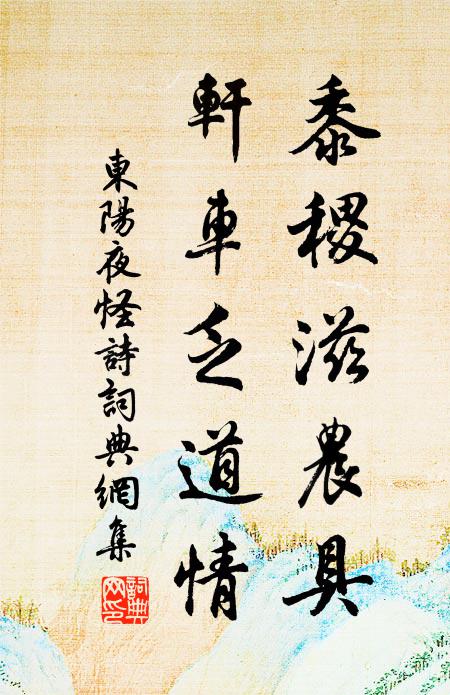 黍稷滋農具
軒車乏道情
東陽夜怪詩詞典網集
詞典網印